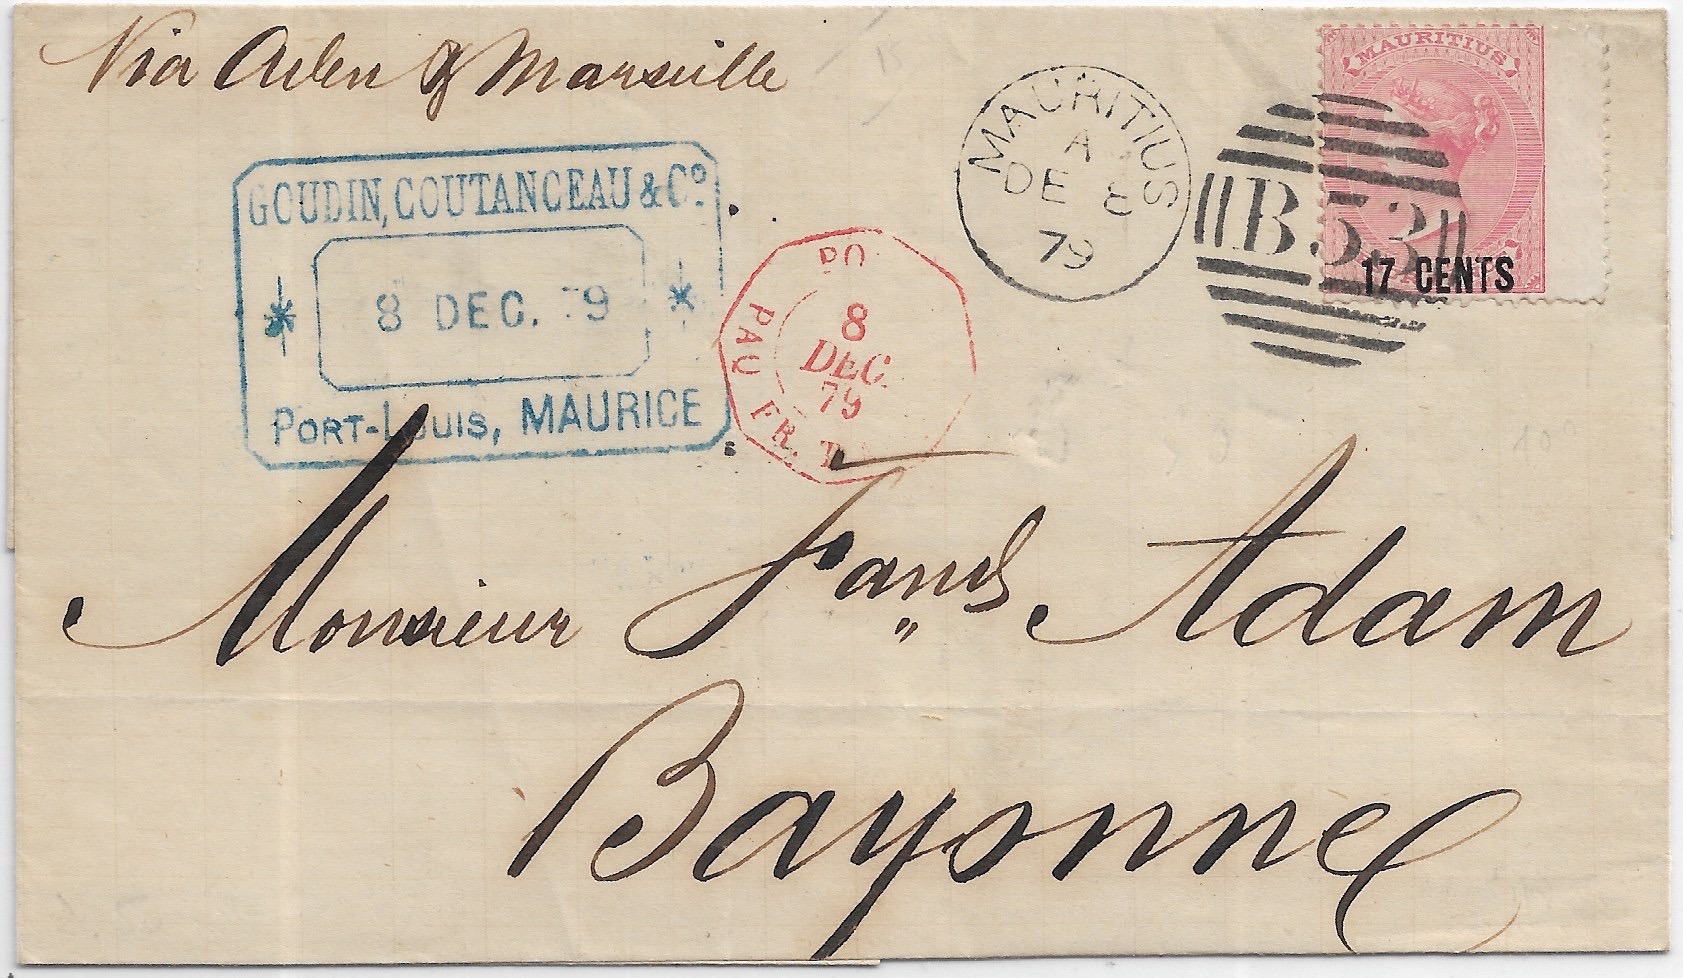 Via Aden & Marseille
MAURITIUS
A
DE 8
79
B53
MAURITIUS
17 CENTS
GOUDIN, COUTANCEAU & Co.
8 DEC. 79
PORT-LOUIS, MAURICE
8
DEC.
79
PAQ FR. T
Monsieur Adam
Bayonne